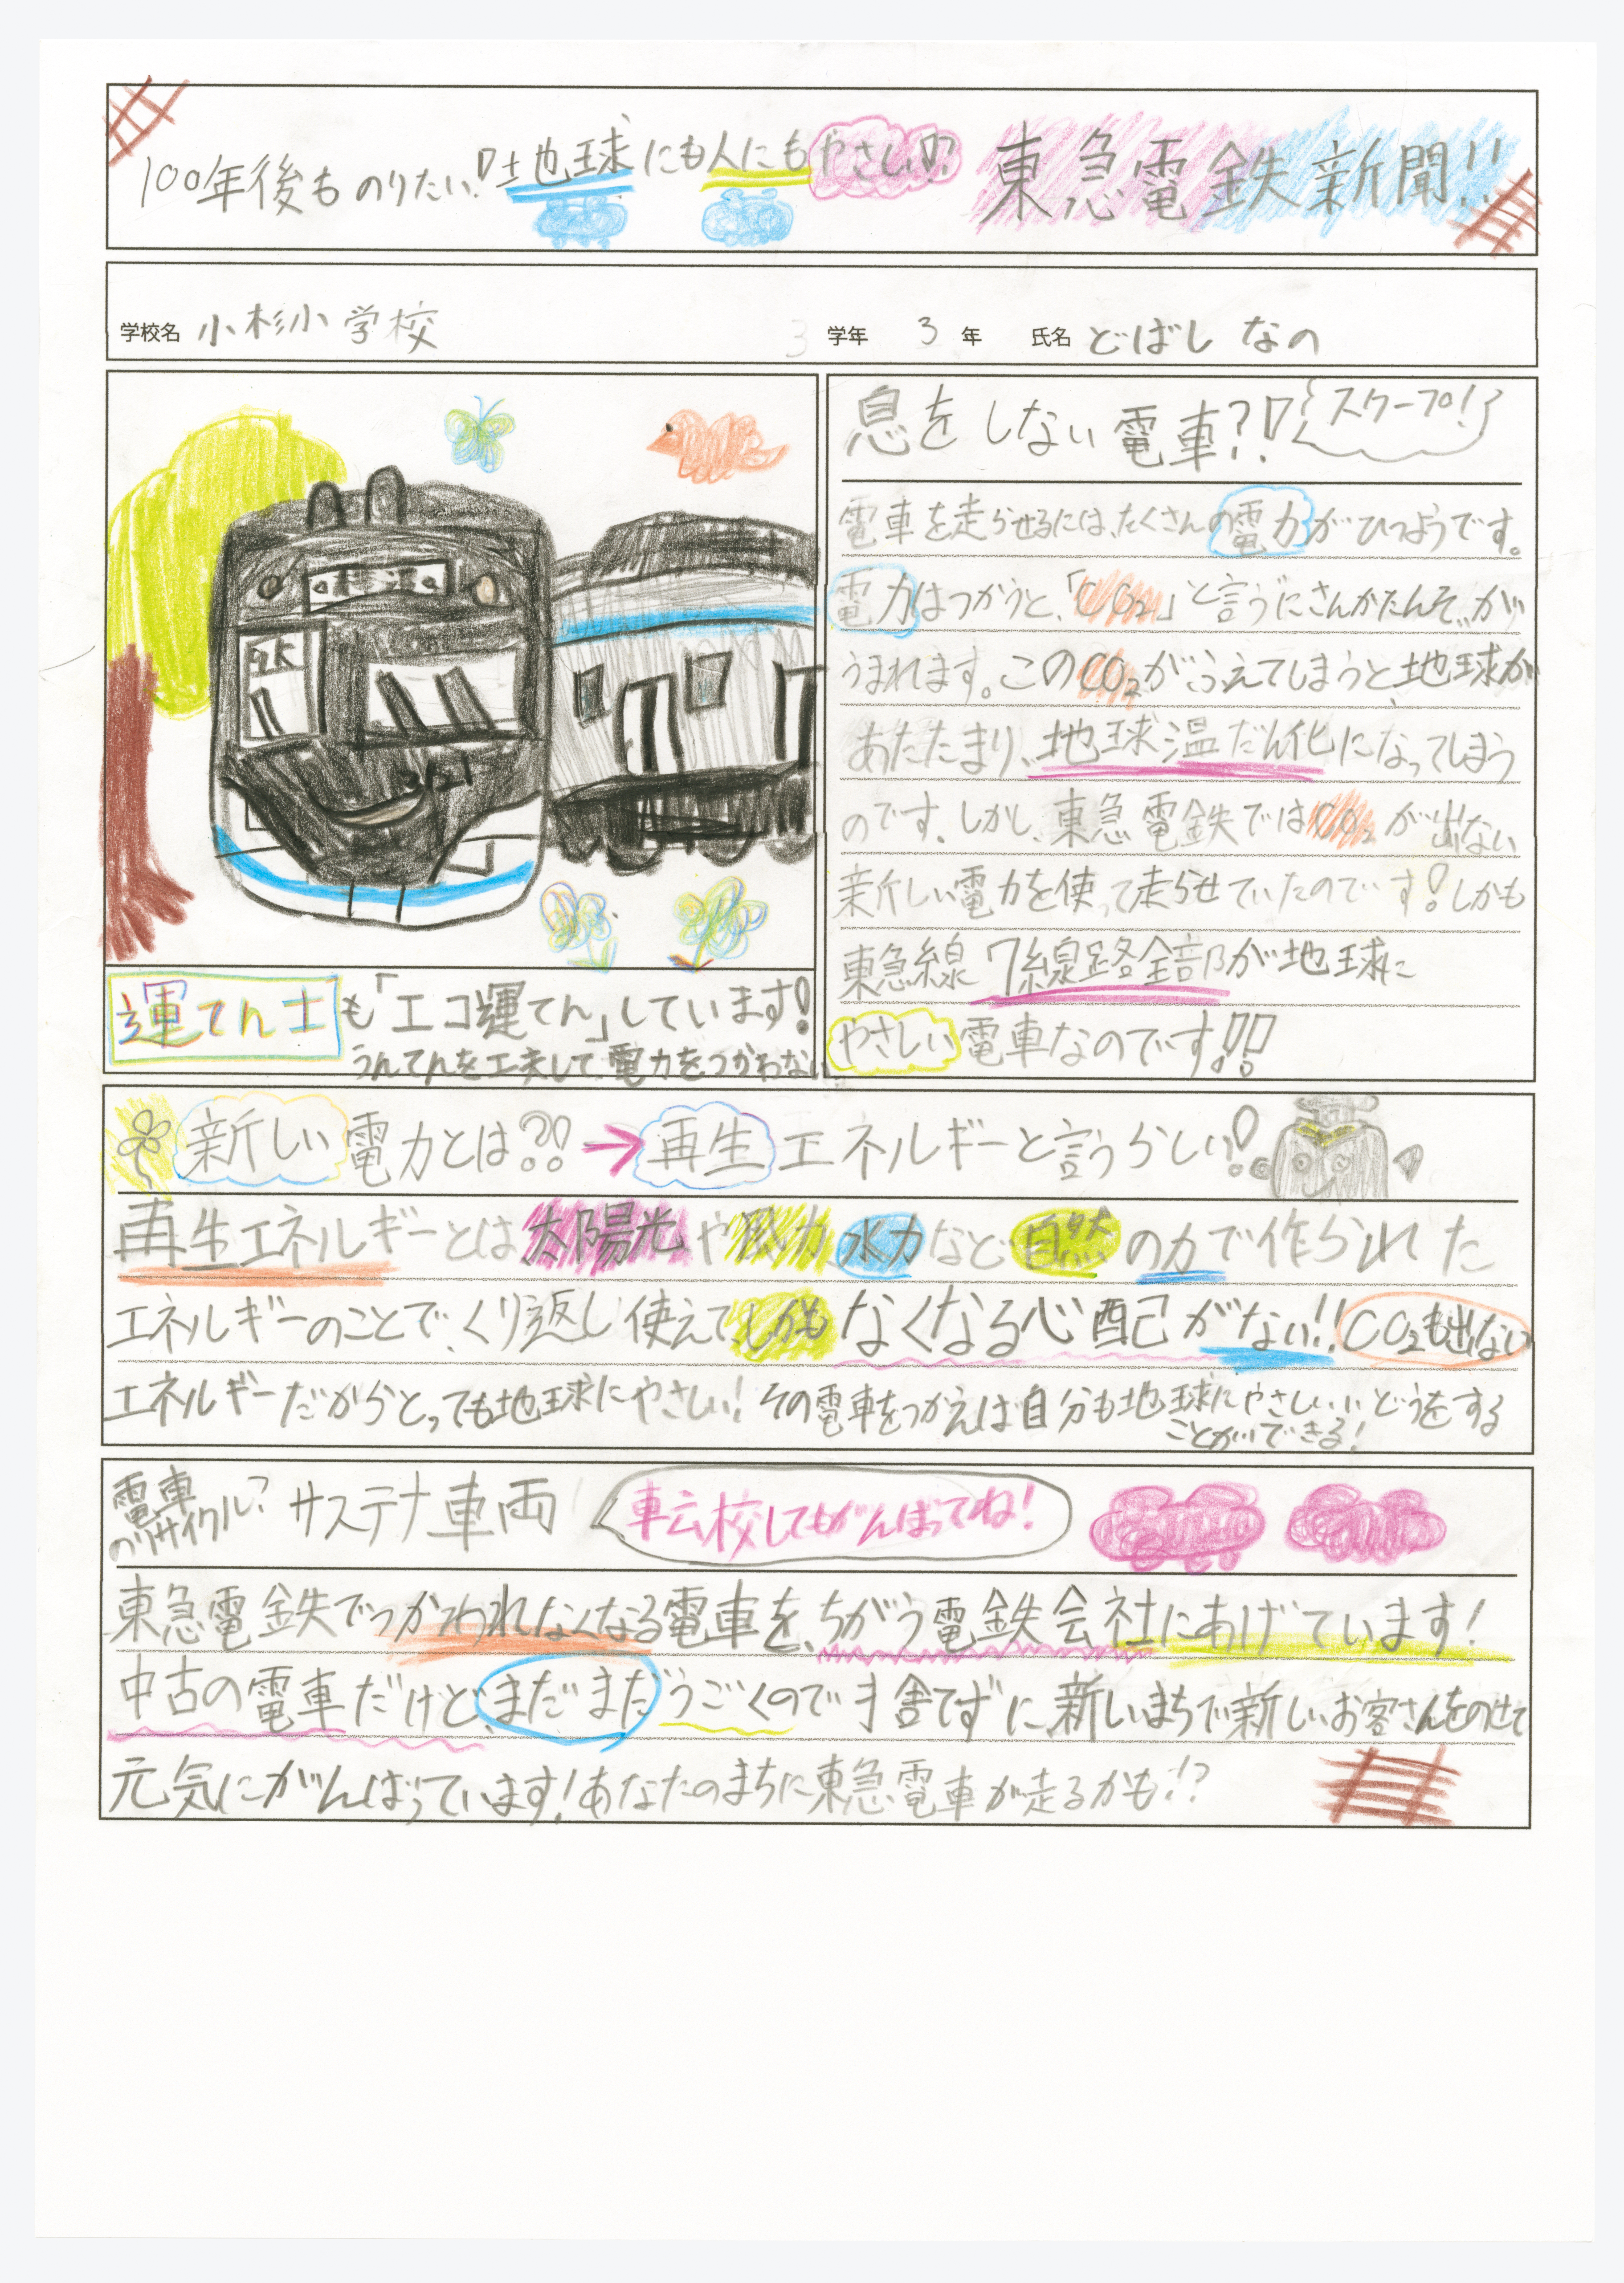 100年後ものりたい!!地球にも人にもやさしい!? 東急電鉄新聞!!
学校名 小杉小学校 3 学年 3 年 氏名 どばし なの
急行
2121
運てん士も「エコ運てん」しています!
うんてんを工夫して、電力をつかわない
息をしない電車?!! スクープ!
電車を走らせるには、たくさんの電力がひつようです。
電力はつかうと、「CO2」と言うにさんかたんそが
うまれます。このCO2がふえてしまうと、地球が
あたたまり、地球温だん化になってしまう
のです。しかし、東急電鉄ではCO2が出ない
新しい電力を使って走らせていたのです!しかも
東急線7線路全部が地球に
やさしい電車なのです!!!
新しい電力とは??!→再生エネルギーと言うらしい!
再生エネルギーとは太陽光や風力、水力など自然の力で作られた
エネルギーのことで、くり返し使えて、しかもなくなる心配がない!!CO2も出ない
エネルギーだからとっても地球にやさしい!その電車をつかえば自分も地球にやさしいいどうをする
ことができる!
電車のリサイクル? サステナ車両 転校してもがんばってね!
東急電鉄でつかわれなくなる電車を、ちがう電鉄会社にあげています!
中古の電車だけど、まだまだうごくので、捨てずに、新しいまちで新しいお客さんをのせて
元気にがんばっています!あなたのまちに東急電車が走るかも!?